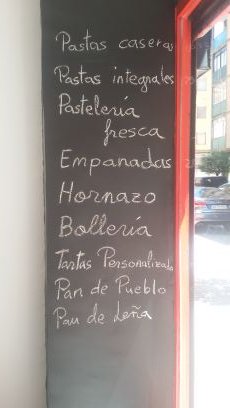 Pastas caseras
Pastas integrales
Pasteleria
fresca
Empanadas
Hornazo
Bollería
Tartas Personalizada
Pan de Pueblo
Pan de Leña